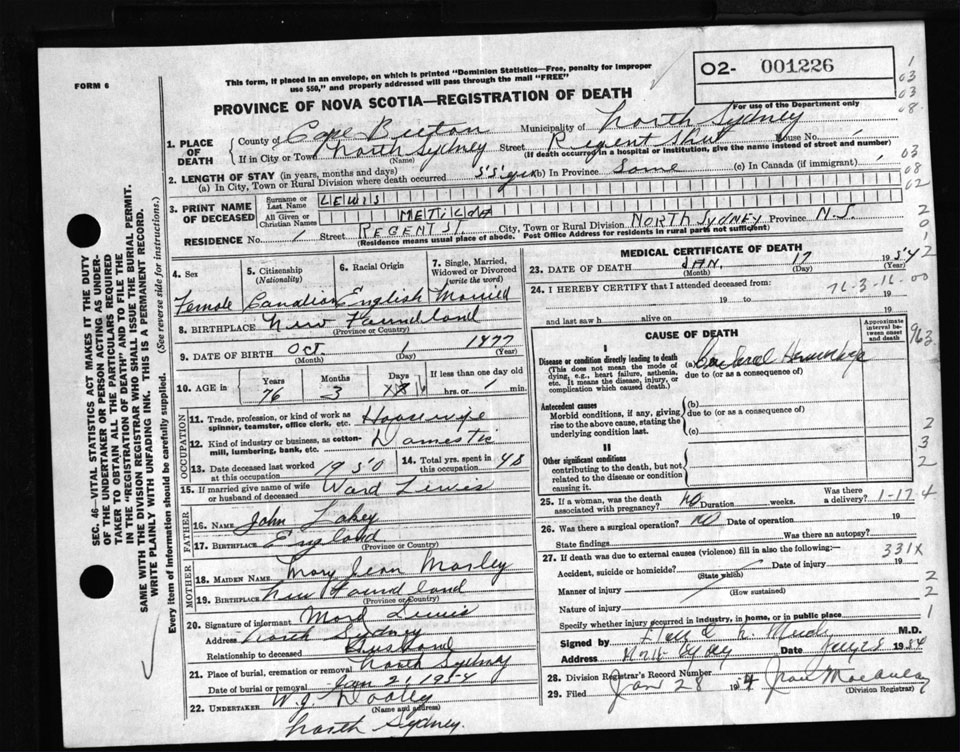 FORM 6
This form, if placed in an envelope, on which is printed "Dominion Statistics—Free, penalty for improper
use $50," and properly addressed will pass through the mail "FREE"
PROVINCE OF NOVA SCOTIA—REGISTRATION OF DEATH
02- 001226
For use of the Department only
1 03 03 08
03 08 02
1. PLACE OF DEATH
County of Cape Breton Municipality of North Sydney
If in City or Town North Sydney Street Regent House No.
(Name) (If death occurred in a hospital or institution, give the name instead of street and number)
2. LENGTH OF STAY (in years, months and days)
(a) In City, Town or Rural Division where death occurred 55 yrs (b) In Province Same (c) In Canada (if immigrant)
3. PRINT NAME OF DECEASED
Surname or Last Name LEWIS
All Given or Christian Names METILDA
RESIDENCE No. Street REGENT ST. City, Town or Rural Division NORTH SYDNEY Province N.S.
(Residence means usual place of abode. Post Office Address for residents in rural parts not sufficient)
4. Sex
Female
5. Citizenship (Nationality)
Canadian
6. Racial Origin
English
7. Single, Married, Widowed or Divorced (write the word)
Married
8. BIRTHPLACE New Foundland
(Province or Country)
9. DATE OF BIRTH Oct. 1 1877
(Month) (Day) (Year)
10. AGE in
Years 76 Months 3 Days
If less than one day
hrs. or min.
OCCUPATION
11. Trade, profession, or kind of work as spinner, teamster, office clerk, etc. Housewife
12. Kind of industry or business, as cotton-mill, lumbering, bank, etc. Domestic
13. Date deceased last worked at this occupation 1950
14. Total yrs. spent in this occupation 48
15. If married give name of wife or husband of deceased Ward Lewis
FATHER
16. NAME John
17. BIRTHPLACE England
(Province or Country)
MOTHER
18. MAIDEN NAME Mary Jean
19. BIRTHPLACE New Foundland
(Province or Country)
20. Signature of informant Lewis
Address North Sydney
Relationship to deceased Husband
21. Place of burial, cremation or removal North Sydney
Date of burial or removal Jan 21, 1954
22. UNDERTAKER W.J. Dooley
(Name and address)
North Sydney.
MEDICAL CERTIFICATE OF DEATH
23. DATE OF DEATH JAN. 17 1954
(Month) (Day) (Year)
24. I HEREBY CERTIFY that I attended deceased from:
19 to 19
and last saw h alive on 19
76-3-16-00
CAUSE OF DEATH
Approximate interval between onset and death
963
I
Disease or condition directly leading to death (a) Cerebral Hemorrhage
(This does not mean the mode of dying, e.g., heart failure, asthenia, etc. It means the disease, injury, or complication which caused death.)
due to (or as a consequence of)
Antecedent causes (b)
Morbid conditions, if any, giving rise to the above cause, stating the underlying condition last.
due to (or as a consequence of)
(c)
II
Other significant conditions
contributing to the death, but not related to the disease or condition causing it.
2
3
2
25. If a woman, was the death associated with pregnancy? NO Duration weeks. Was there a delivery? 1-17 4
26. Was there a surgical operation? NO Date of operation 19
State findings Was there an autopsy?
27. If death was due to external causes (violence) fill in also the following:— 331X
Accident, suicide or homicide? Date of injury 19
(State which)
Manner of injury 2
(How sustained)
Nature of injury 2
Specify whether injury occurred in industry, in home, or in public place 1
Signed by M.D.
Address Date 1954
28. Division Registrar's Record Number
29. Filed Jan 28 1954
(Division Registrar)
SEC. 46—VITAL STATISTICS ACT MAKES IT THE DUTY
OF THE UNDERTAKER OR PERSON ACTING AS UNDER-
TAKER TO OBTAIN ALL THE PARTICULARS REQUIRED
IN THE "REGISTRATION OF DEATH" AND TO FILE THE
SAME WITH THE DIVISION REGISTRAR WHO SHALL ISSUE THE BURIAL PERMIT.
WRITE PLAINLY WITH UNFADING INK. THIS IS A PERMANENT RECORD.
Every item of information should be carefully supplied. (See reverse side for instructions.)